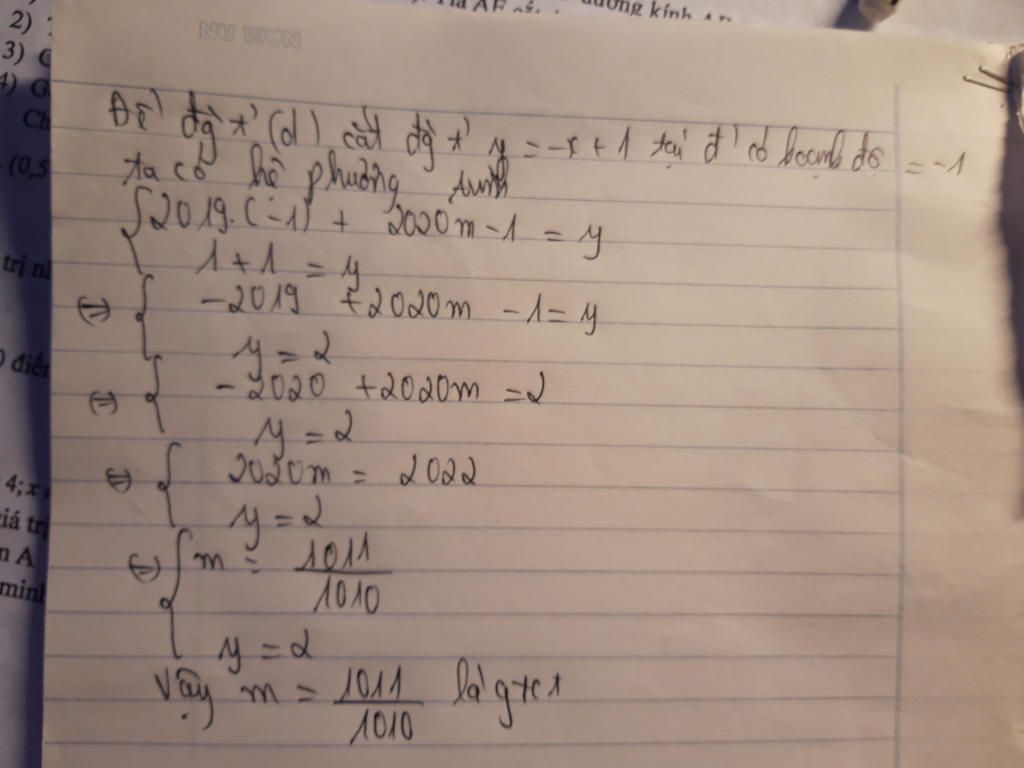 2)
3) C
4) G
Ch
(0,5
trị nh
điểm
4; x
iá trị
n A
minh
Tia AE cắt
đường kính AB
NU WUN
Để đg t² (d) cắt đg t² y = -x + 1 tại đ' có hoành độ = -1
ta có hệ phương trình
2019.(-1) + 2020m - 1 = y
1 + 1 = y
(=) - 2019 + 2020m - 1 = y
y = 2
(=) - 2020 + 2020m = 2
y = 2
(=) 2020m = 2022
y = 2
(=) m = 1011
1010
y = 2
Vậy m = 1011 là gtct
1010